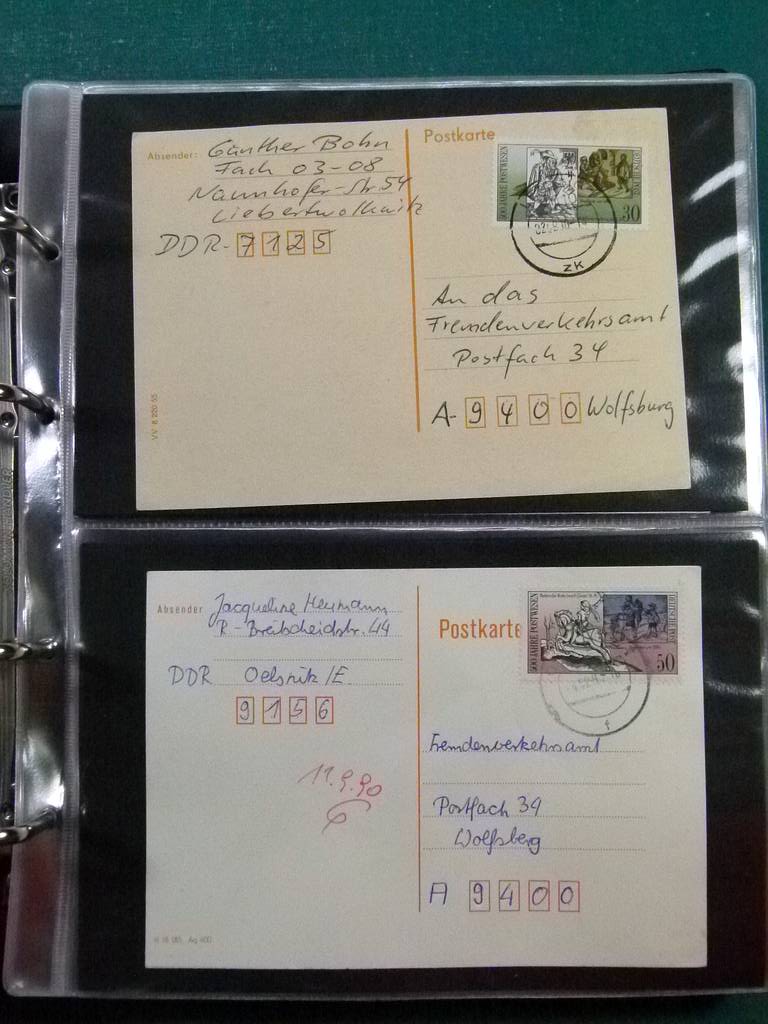 Absender: Günther Bohn
Fach 03-08
Naunhofer-Str. 54
Liebertwolkwitz
DDR-7125
VV 8 220 55
Postkarte
500 JAHRE POSTWESEN
30
ZK
An das
Fremdenverkehrsamt
Postfach 34
A-9400 Wolfsburg
Absender Jacqueline Heumann
R-Breitscheidstr. 44
DDR Oelsnitz /E.
9156
11.9.90
Postkarte
500 JAHRE POSTWESEN
DEUTSCHE POST
50
f
Fremdenverkehrsamt
Postfach 34
Wolfsberg
A 9400